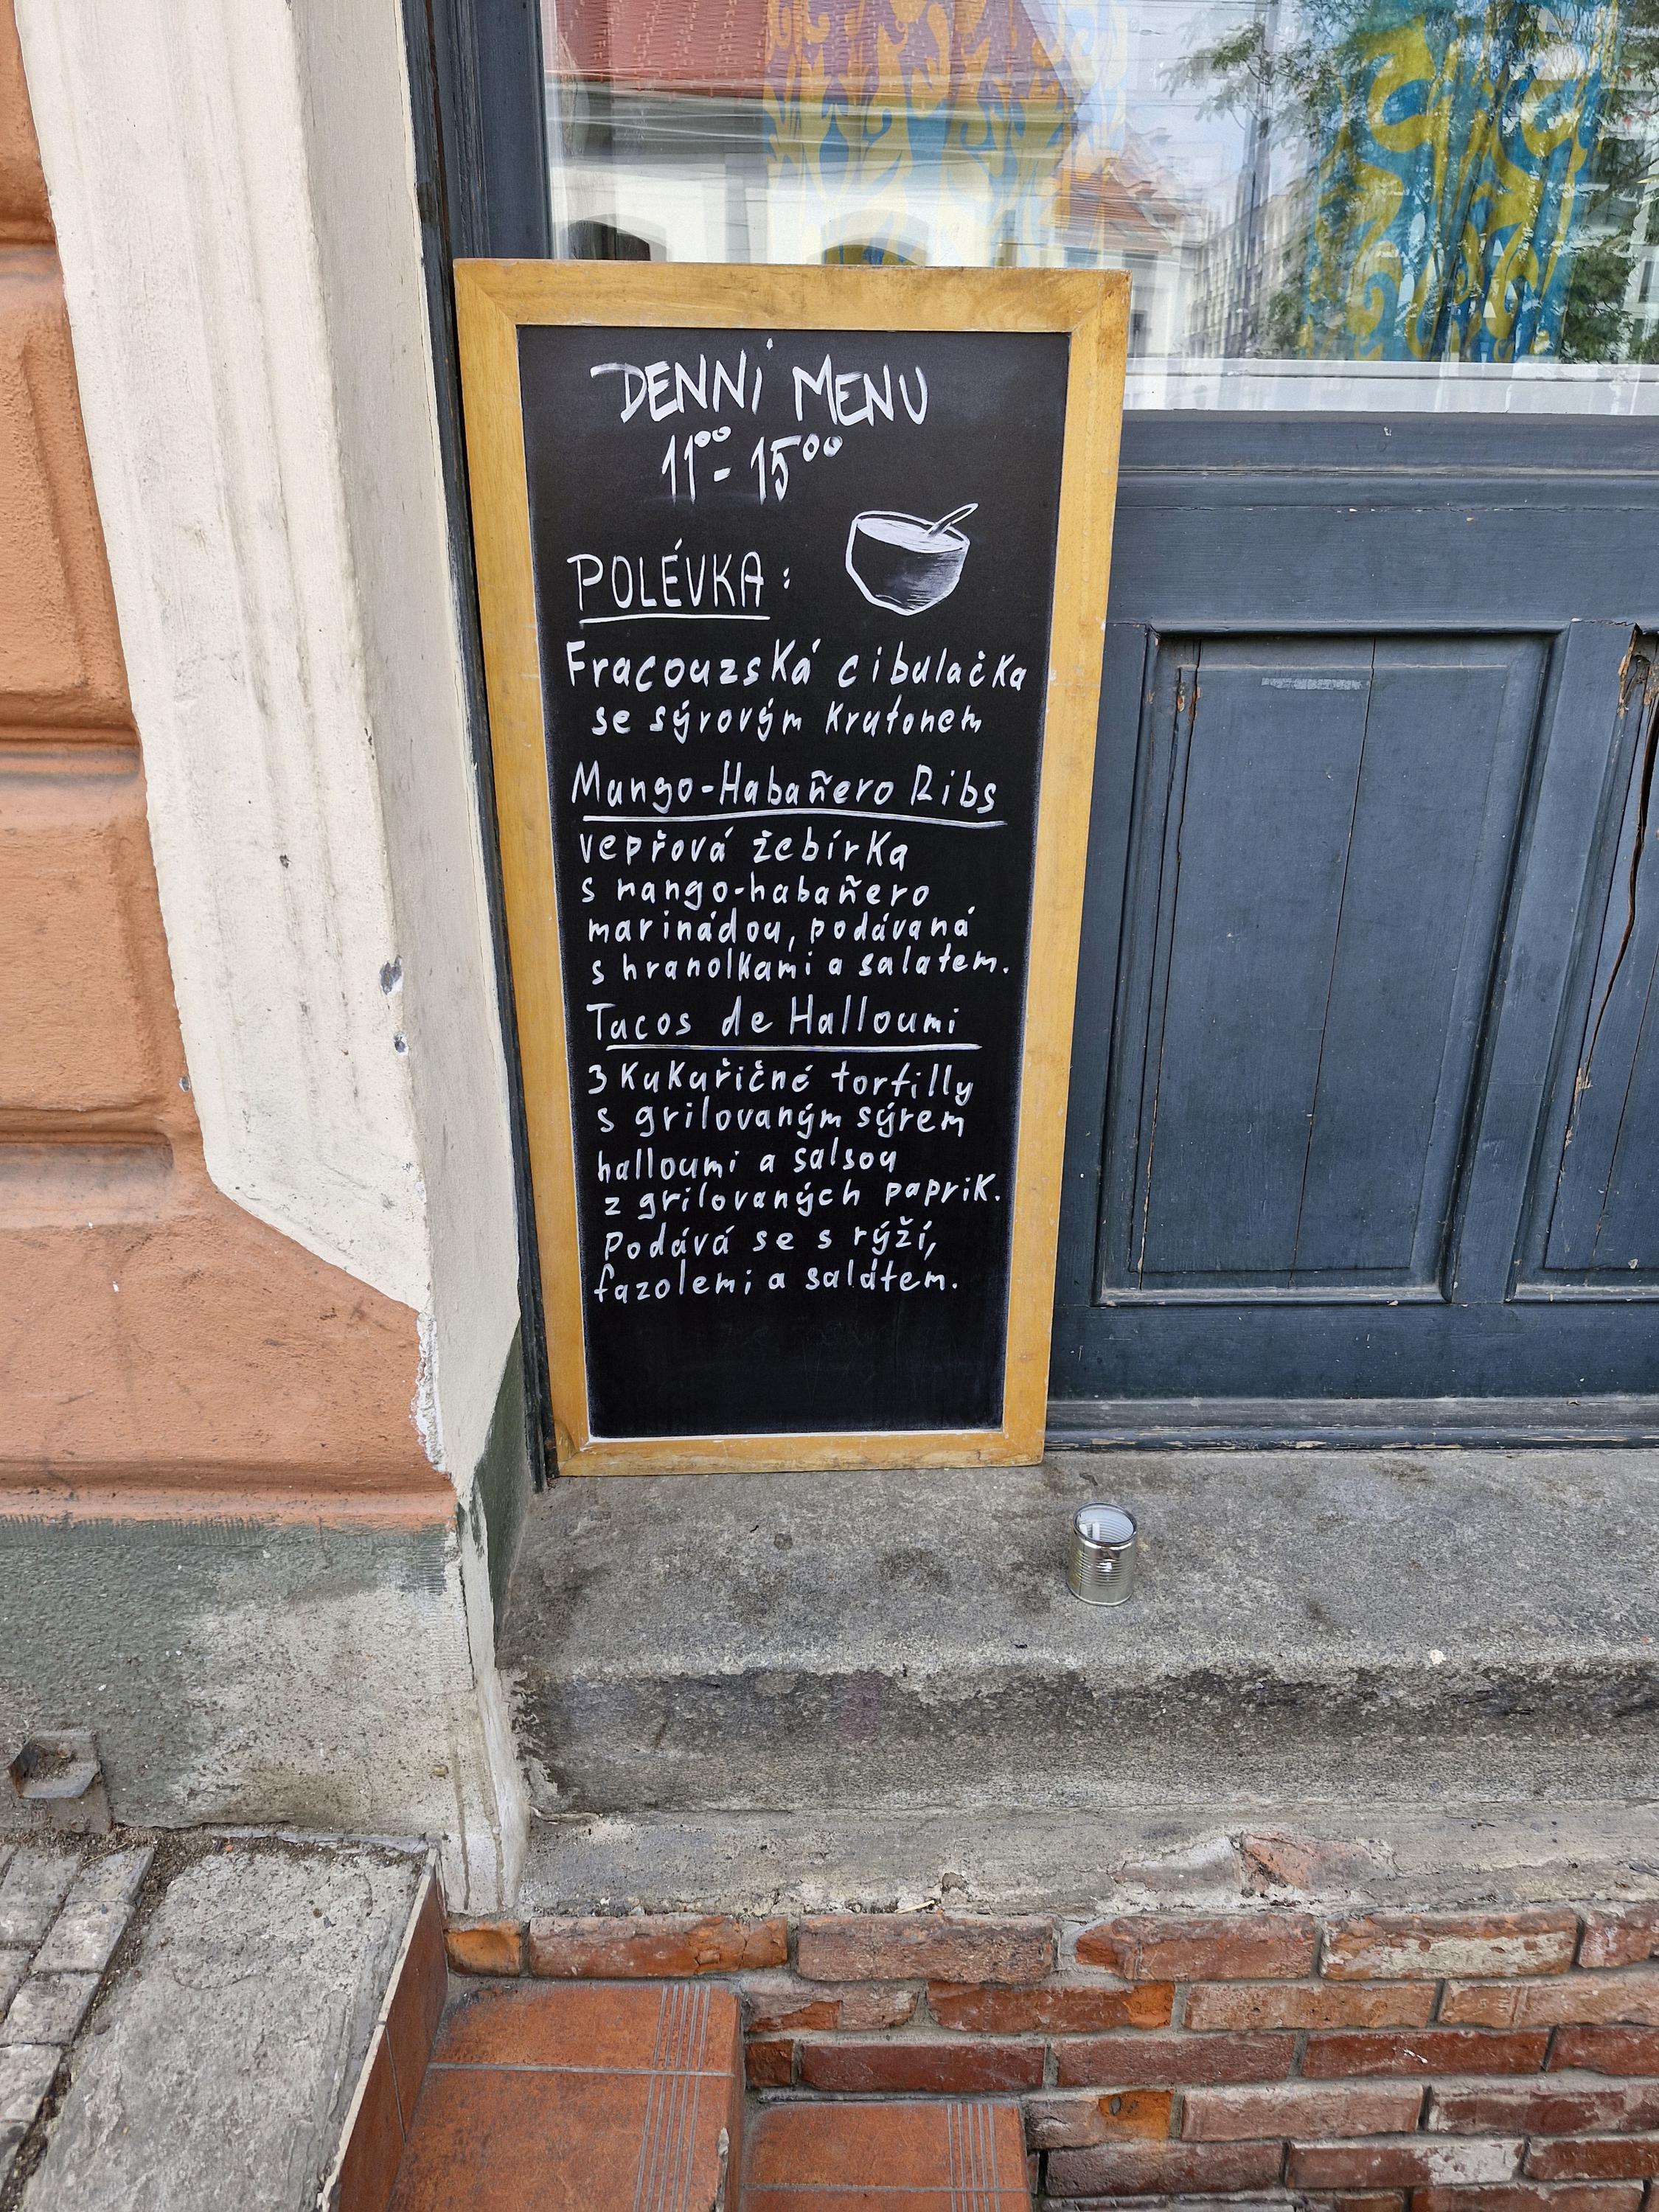 DENNí MENU
11⁰⁰ - 15⁰⁰
POLÉVKA:
Fracouzská cibulačka
se sýrovým krutonem
Mango-Habañero Ribs
vepřová žebírka
s nango-habañero
marinádou, podávaná
s hranolkami a salatem.
Tacos de Halloumi
3 kukuřičné tortilly
s grilovaným sýrem
halloumi a salsou
z grilovaných paprik.
Podává se s rýží,
fazolemi a salátem.